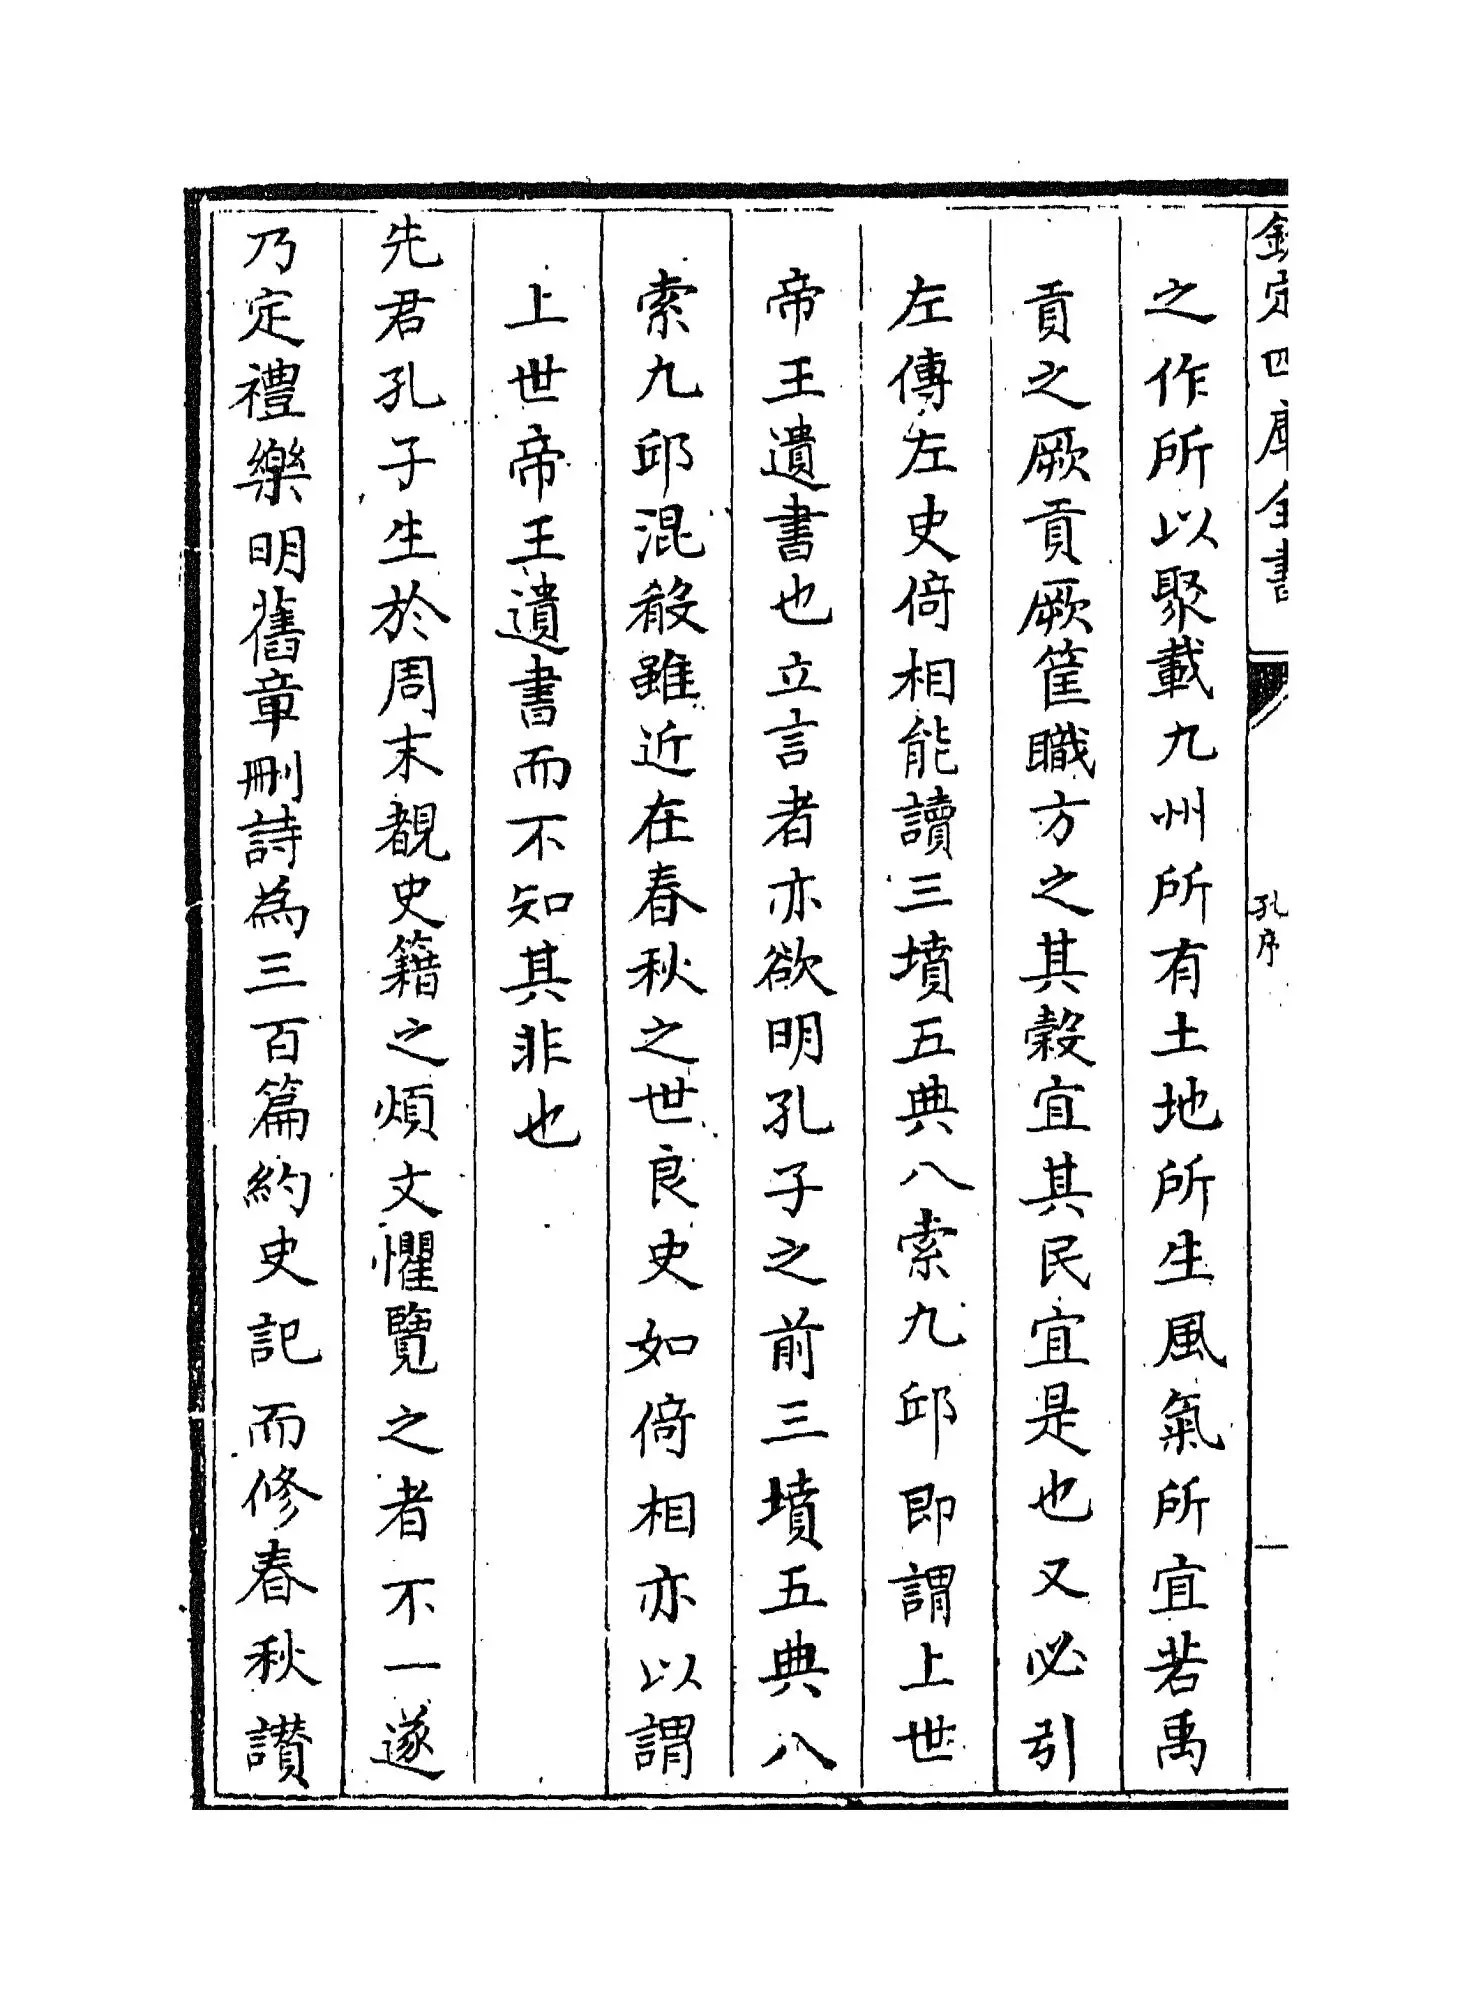 欽定四庫全書
孔序
一
之作所以聚載九州所有土地所生風氣所宜若禹
貢之厥貢厥篚職方之其穀宜其民宜是也又必引
左傳左史倚相能讀三墳五典八索九邱即謂上世
帝王遺書也立言者亦欲明孔子之前三墳五典八
索九邱混殽雖近在春秋之世良史如倚相亦以謂
上世帝王遺書而不知其非也
先君孔子生於周末覩史籍之煩文懼覽之者不一遂
乃定禮樂明舊章刪詩為三百篇約史記而修春秋讃